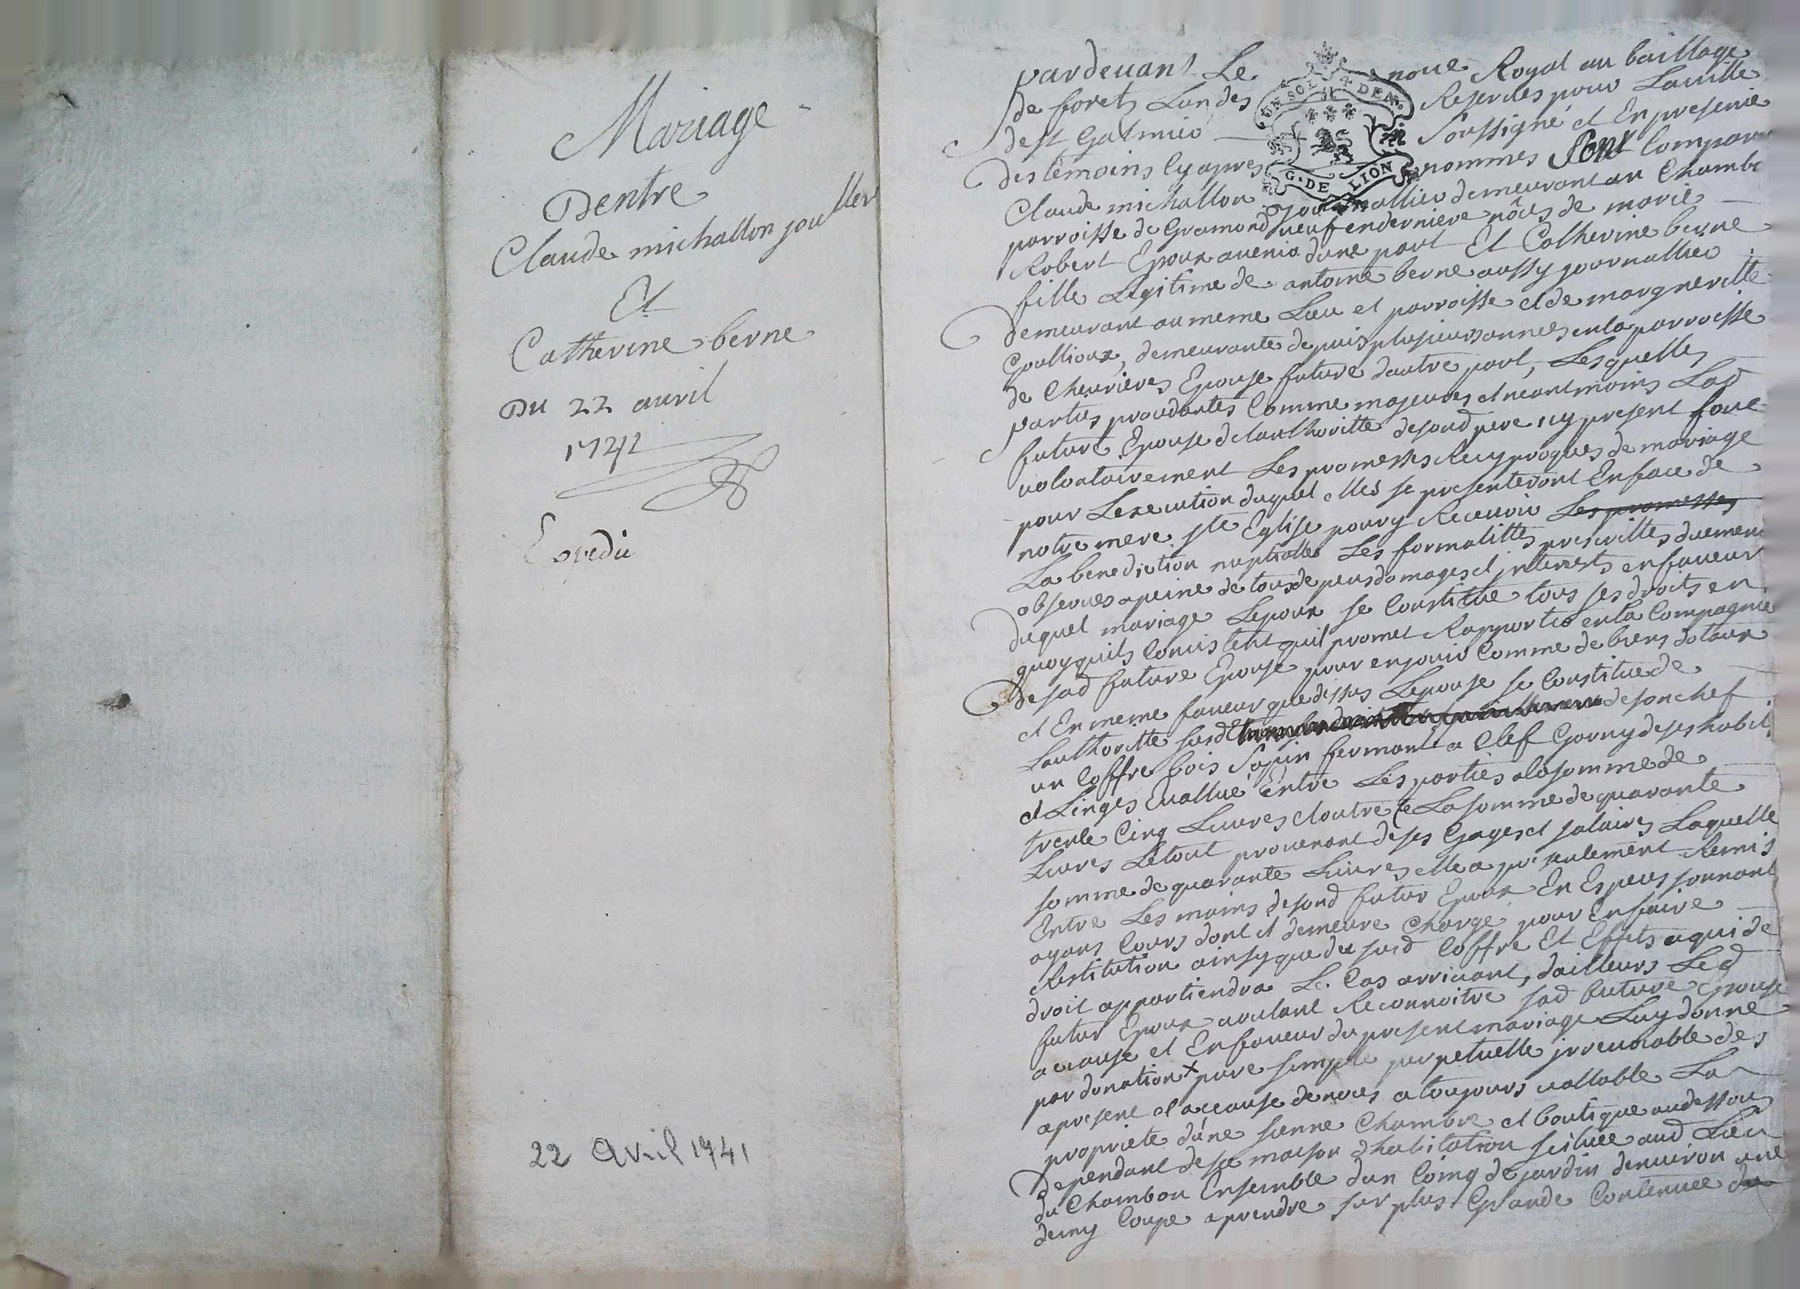 Mariage
Dentre
Claude michallon jouller
Et
Catherine berne
Du 22 avril
1741
Expedie
22 Avril 1941
pardevant Le noue Royal au bailliage
de forets Lun des Reserves pour Laville
de st Galmier Soussigné et En presence
des temoins cy apres nommes Sont Compar
UN SOL 4 DEN
G. DE LION
Claude michallon journallier demeurant au Chambo
parroisse de Gramond veuf en derniere nôces de marie
Robert Epoux avenir dune part Et Catherine berne
fille Legitime de antoine berne aussy journallier
demeurant au meme Lieu et parroisse et de margueritte
Goullioux, demeurante depuis plusieurs annees en la parroisse
de Chevrieres Epouse future dautre part, Lesquelles
parties procedantes Comme majeures et neantmoins Lad
future Epouse de lauthoritté desond pere icy present font
volontairement Les promesses Recyproques de mariage
pour Lexecution duquel elles se presenteront En face de
notre mere ste Eglise pour y Recevoir Les promesses
La benediction nuptialle Les formalittés prescrittes duement
observees apeine de tous depens domages et interests enfaveur
duquel mariage Lepoux se Constitue tous ses droits en
quoy quils Consistent quil promet Rapporter en la Compagnie
de sad future Epouse pour en jouir Comme de biens dotaux
et En meme faveur que dessus Lepouse se Constitue de
Lauthoritté susd de son chef
un Coffre bois Sapin fermant a Clef Garny de ses habits
et Linges Evallué Entre Les parties alasomme de
trente Cinq Livres et outre ce La somme de quarante
Livres Letout provenant de ses Gages et salaires Laquelle
somme de quarante Livres elle a presentement Remis
Entre Les mains desond futur Epoux En Especes sonnant
ayant Cours dont il demeure Chargé pour En faire
Restitution ainsy que du susd Coffre Et Effets a qui de
droit appartiendra Le Cas arrivant, dailleurs Led
futur Epoux voulant Reconnoitre sad future Epouse
a cause et En faveur du present mariage Luy donne
par donation x pure simple perpetuelle irrevocable des
apresent et a cause de noces a toujours vallable La
propriete dune sienne Chambre et boutique audessous
Dependant de sa maison dhabitation scituée aud Lieu
du Chambon Ensemble dun Coing de jardin denviron une
demy Coupe aprendre sur plus Grande Contenuee du